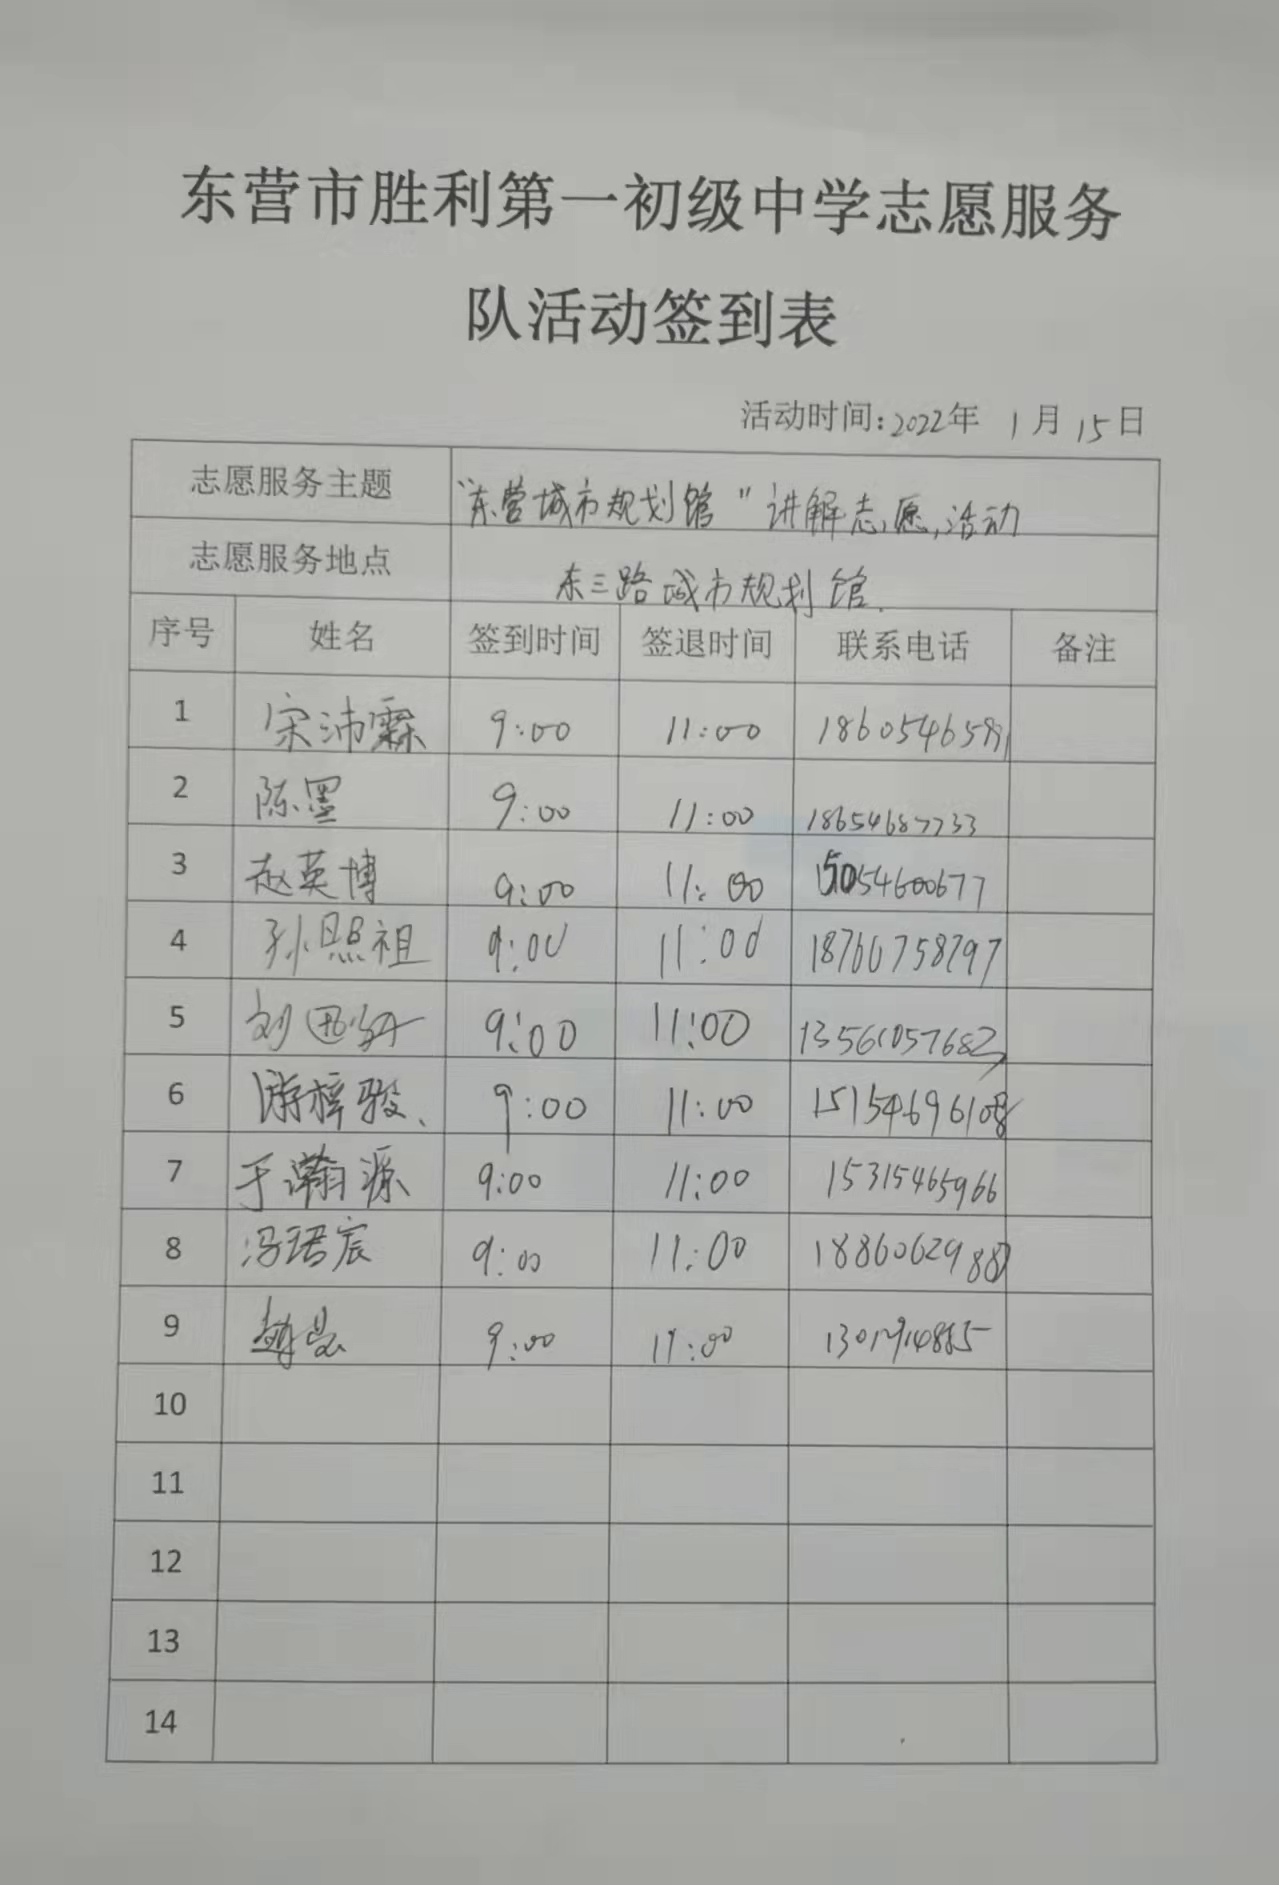 东营市胜利第一初级中学志愿服务
队活动签到表
活动时间：2022年 1月 15日
志愿服务主题 “东营城市规划馆”讲解志愿活动
志愿服务地点 东三路城市规划馆.
序号 姓名 签到时间 签退时间 联系电话 备注
1 宋沛霖 9:00 11:00
2 陈墨 9:00 11:00 18654687733
3 赵英博 9:00 11:00 15054600677
4 孙照祖 9:00 11:00 18760758797
5 9:00 11:00 13561057682
6 游梓骏、 9:00 11:00 15154696108
7 于瀚源 9:00 11:00 15315465966
8 冯珺宸 9:00 11:00
9 9:00 11:00
10
11
12
13
14